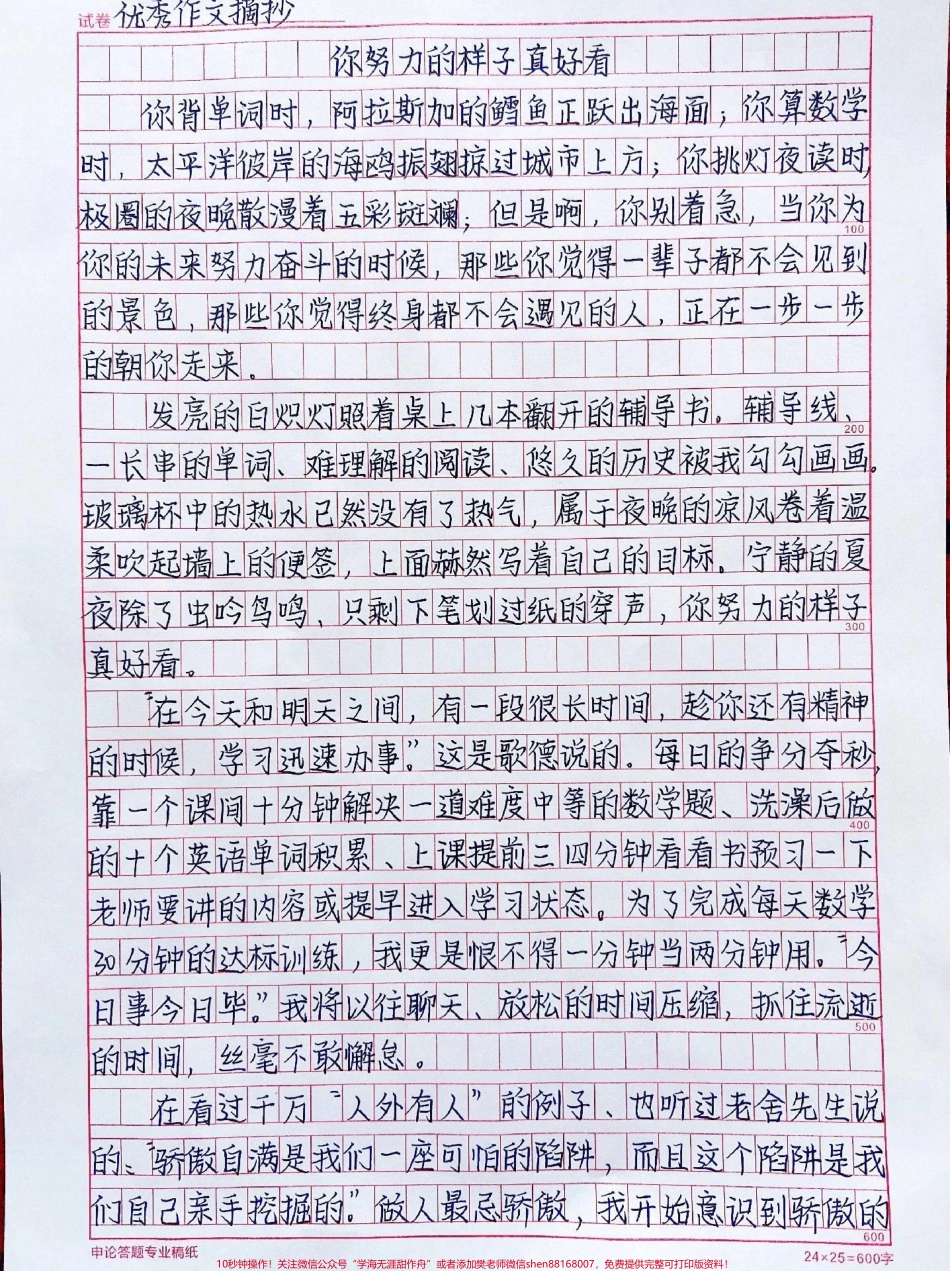 试卷 优秀作文摘抄
你努力的样子真好看
你背单词时，阿拉斯加的鳕鱼正跃出海面；你算数学
时，太平洋彼岸的海鸥振翅掠过城市上方；你挑灯夜读时，
极圈的夜晚散漫着五彩斑斓；但是啊，你别着急，当你为
100
你的未来努力奋斗的时候，那些你觉得一辈子都不会见到
的景色，那些你觉得终身都不会遇见的人，正在一步一步
的朝你走来。
发亮的白炽灯照着桌上几本翻开的辅导书。辅导线、
200
一长串的单词、难理解的阅读、悠久的历史被我勾勾画画。
玻璃杯中的热水已然没有了热气，属于夜晚的凉风卷着温
柔吹起墙上的便签，上面赫然写着自己的目标。宁静的夏
夜除了虫吟鸟鸣、只剩下笔划过纸的穿声，你努力的样子
300
真好看。
“在今天和明天之间，有一段很长时间，趁你还有精神
的时候，学习迅速办事。”这是歌德说的。每日的争分夺秒，
靠一个课间十分钟解决一道难度中等的数学题、洗澡后做
400
的十个英语单词积累、上课提前三四分钟看看书预习一下
老师要讲的内容或提早进入学习状态。为了完成每天数学
30分钟的达标训练，我更是恨不得一分钟当两分钟用。“今
日事今日毕。”我将以往聊天、放松的时间压缩，抓住流逝
500
的时间，丝毫不敢懈怠。
在看过千万“人外有人”的例子、也听过老舍先生说
的：“骄傲自满是我们一座可怕的陷阱，而且这个陷阱是我
们自己亲手挖掘的。”做人最忌骄傲，我开始意识到骄傲的
600
申论答题专业稿纸 24×25=600字
10秒钟操作！关注微信公众号“学海无涯甜作舟”或者添加樊老师微信shen88168007，免费提供完整可打印版资料！